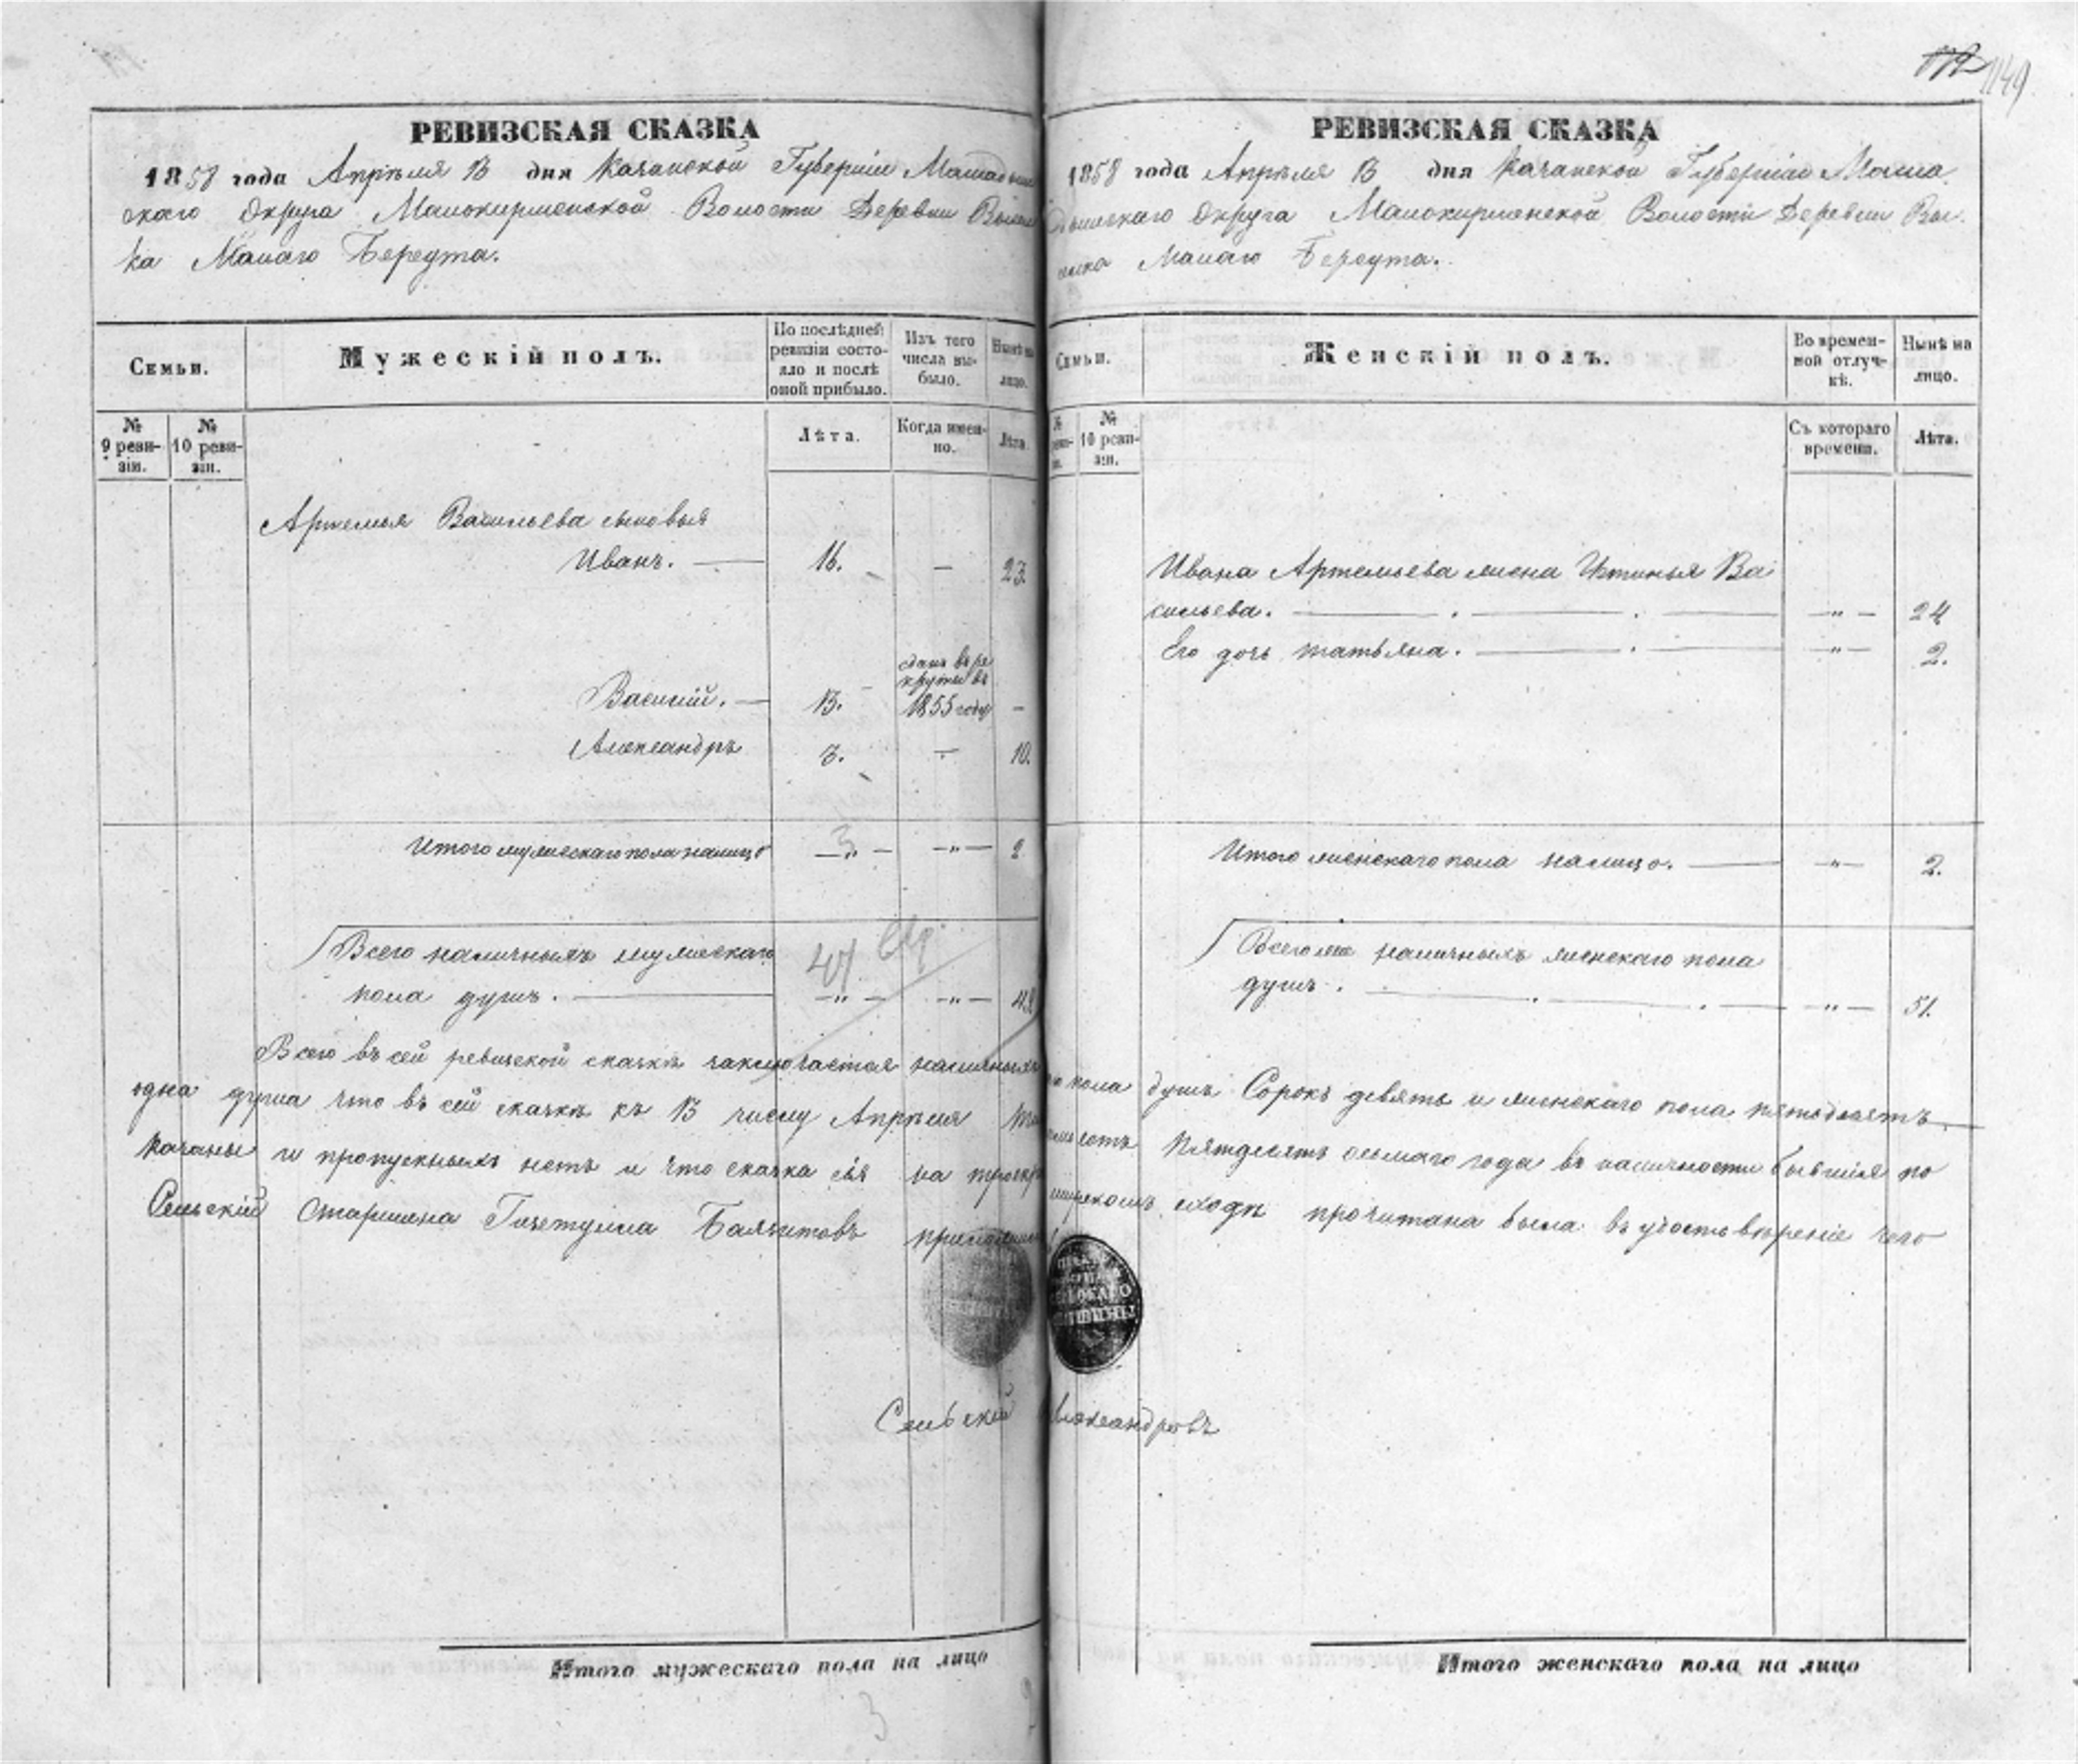 1149
РЕВИЗСКАЯ СКАЗКА
1858 года Апрѣля 13 дня Казанской Губерніи Мамадыш
скаго Округа Малокирменской Волости Деревни Вылеш
ка Малаго Береута.
Семьи.
Мужескій полъ.
По послѣдней
ревизіи состо-
яло и послѣ
оной прибыло.
Изъ того
числа вы-
было.
Нынѣ на
лицо.
№
9 реви-
зіи.
№
10 реви-
зіи.
Лѣта.
Когда имен-
но.
Лѣта.
Артемья Васильева сыновья
Иванъ. 16. — 23.
Василій. 13. сданъ въ ре
круты въ
1855 году —
Александръ 3. — 10.
Итого мужескаго пола налицо 3 —„— 2
Всего наличныхъ мужескаго 47
пола душъ. —„— —„— 49
РЕВИЗСКАЯ СКАЗКА
1858 года Апрѣля 13 дня Казанской Губерніи Мама
дышскаго Округа Малокирменской Волости Деревни Вы-
лешка Малаго Береута.
Семьи.
Женскій полъ.
Во времен-
ной отлуч-
кѣ.
Нынѣ на
лицо.
№
реви-
зіи.
№
10 реви-
зіи.
Съ котораго
времени.
Лѣта.
Ивана Артемьева жена Устинья Ва
сильева. —„— 24
Его дочь татьяна. —„— 2.
Итого женскаго пола налицо. —„— 2.
Всего же наличныхъ женскаго пола
душъ. —„— 51.
Всего въ сей ревизской сказкѣ заключается наличныхъ го пола душъ Сорокъ девять и женскаго пола пятьдесятъ
одна душа что въ сей сказкѣ къ 13 числу Апрѣля сотъ Пятдесятъ осьмаго года въ наличности бывшія по
казаны и пропускныхъ нетъ и что сказка сія на мирскомъ сходѣ прочитана была въ удостовѣреніе чего
Сельскій Старшина
Сельскій Александровъ
Итого мужескаго пола на лицо
3
2
Итого женскаго пола на лицо